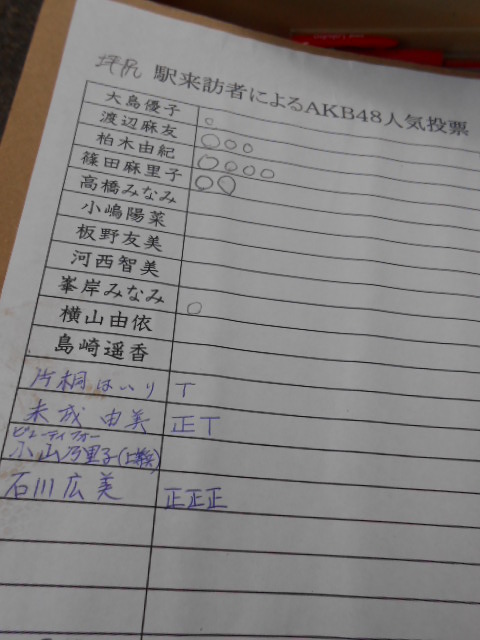 坪尻 駅来訪者によるAKB48人気投票
大島優子 ○
渡辺麻友 ○○○
柏木由紀 ○○○○
篠田麻里子 ○○
高橋みなみ
小嶋陽菜
板野友美
河西智美
峯岸みなみ ○
横山由依
島崎遥香
片桐はいり 丅
末成由美 正丅
ビューティフォー
小山乃里子
石川広美 正正正